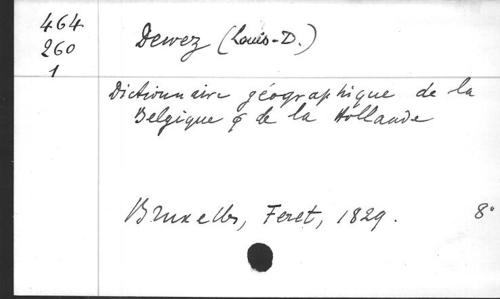 464
260
1
Dewez (Louis-D.)
Dictionnaire géographique de la
Belgique & de la Hollande
Bruxelles, Feret, 1829. 8°